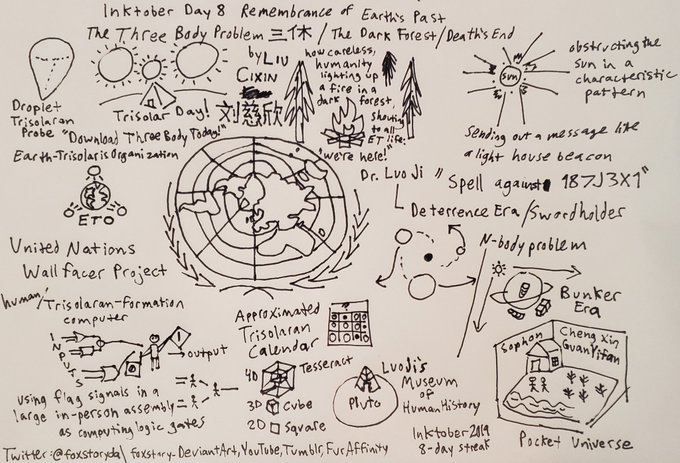 Inktober Day 8 Remembrance of Earth's Past
The Three Body Problem 三体 / The Dark Forest/Death's End
by Liu
Cixin
刘慈欣
how careless,
humanity
lighting up
a fire in a
dark forest,
shouting
to all
ET life:
"we're here!"
sun
obstructing the
sun in a
characteristic
pattern
Droplet
Trisolaran
Probe
Trisolar Day!
"Download Three Body Today!"
Earth-Trisolaris Organization
ETO
sending out a message like
a light house beacon
Dr. Luo Ji "Spell against 187J3X1"
Deterrence Era/Swordholder
United Nations
Wallfacer Project
N-body problem
Bunker
Era
human/Trisolaran-formation
computer
INPUTS
1
output
using flag signals in a
large in-person assembly
as computing logic gates
Approximated
Trisolaran
Calendar
?
4D Tesseract
3D Cube
2D Square
Luo Ji's
Museum
of
Human History
Pluto
Sophon
Cheng Xin
Guan Yifan
Pocket Universe
Inktober 2019
8-day streak
Twitter: @foxstoryda\ foxstory-DeviantArt, YouTube, Tumblr, FurAffinity